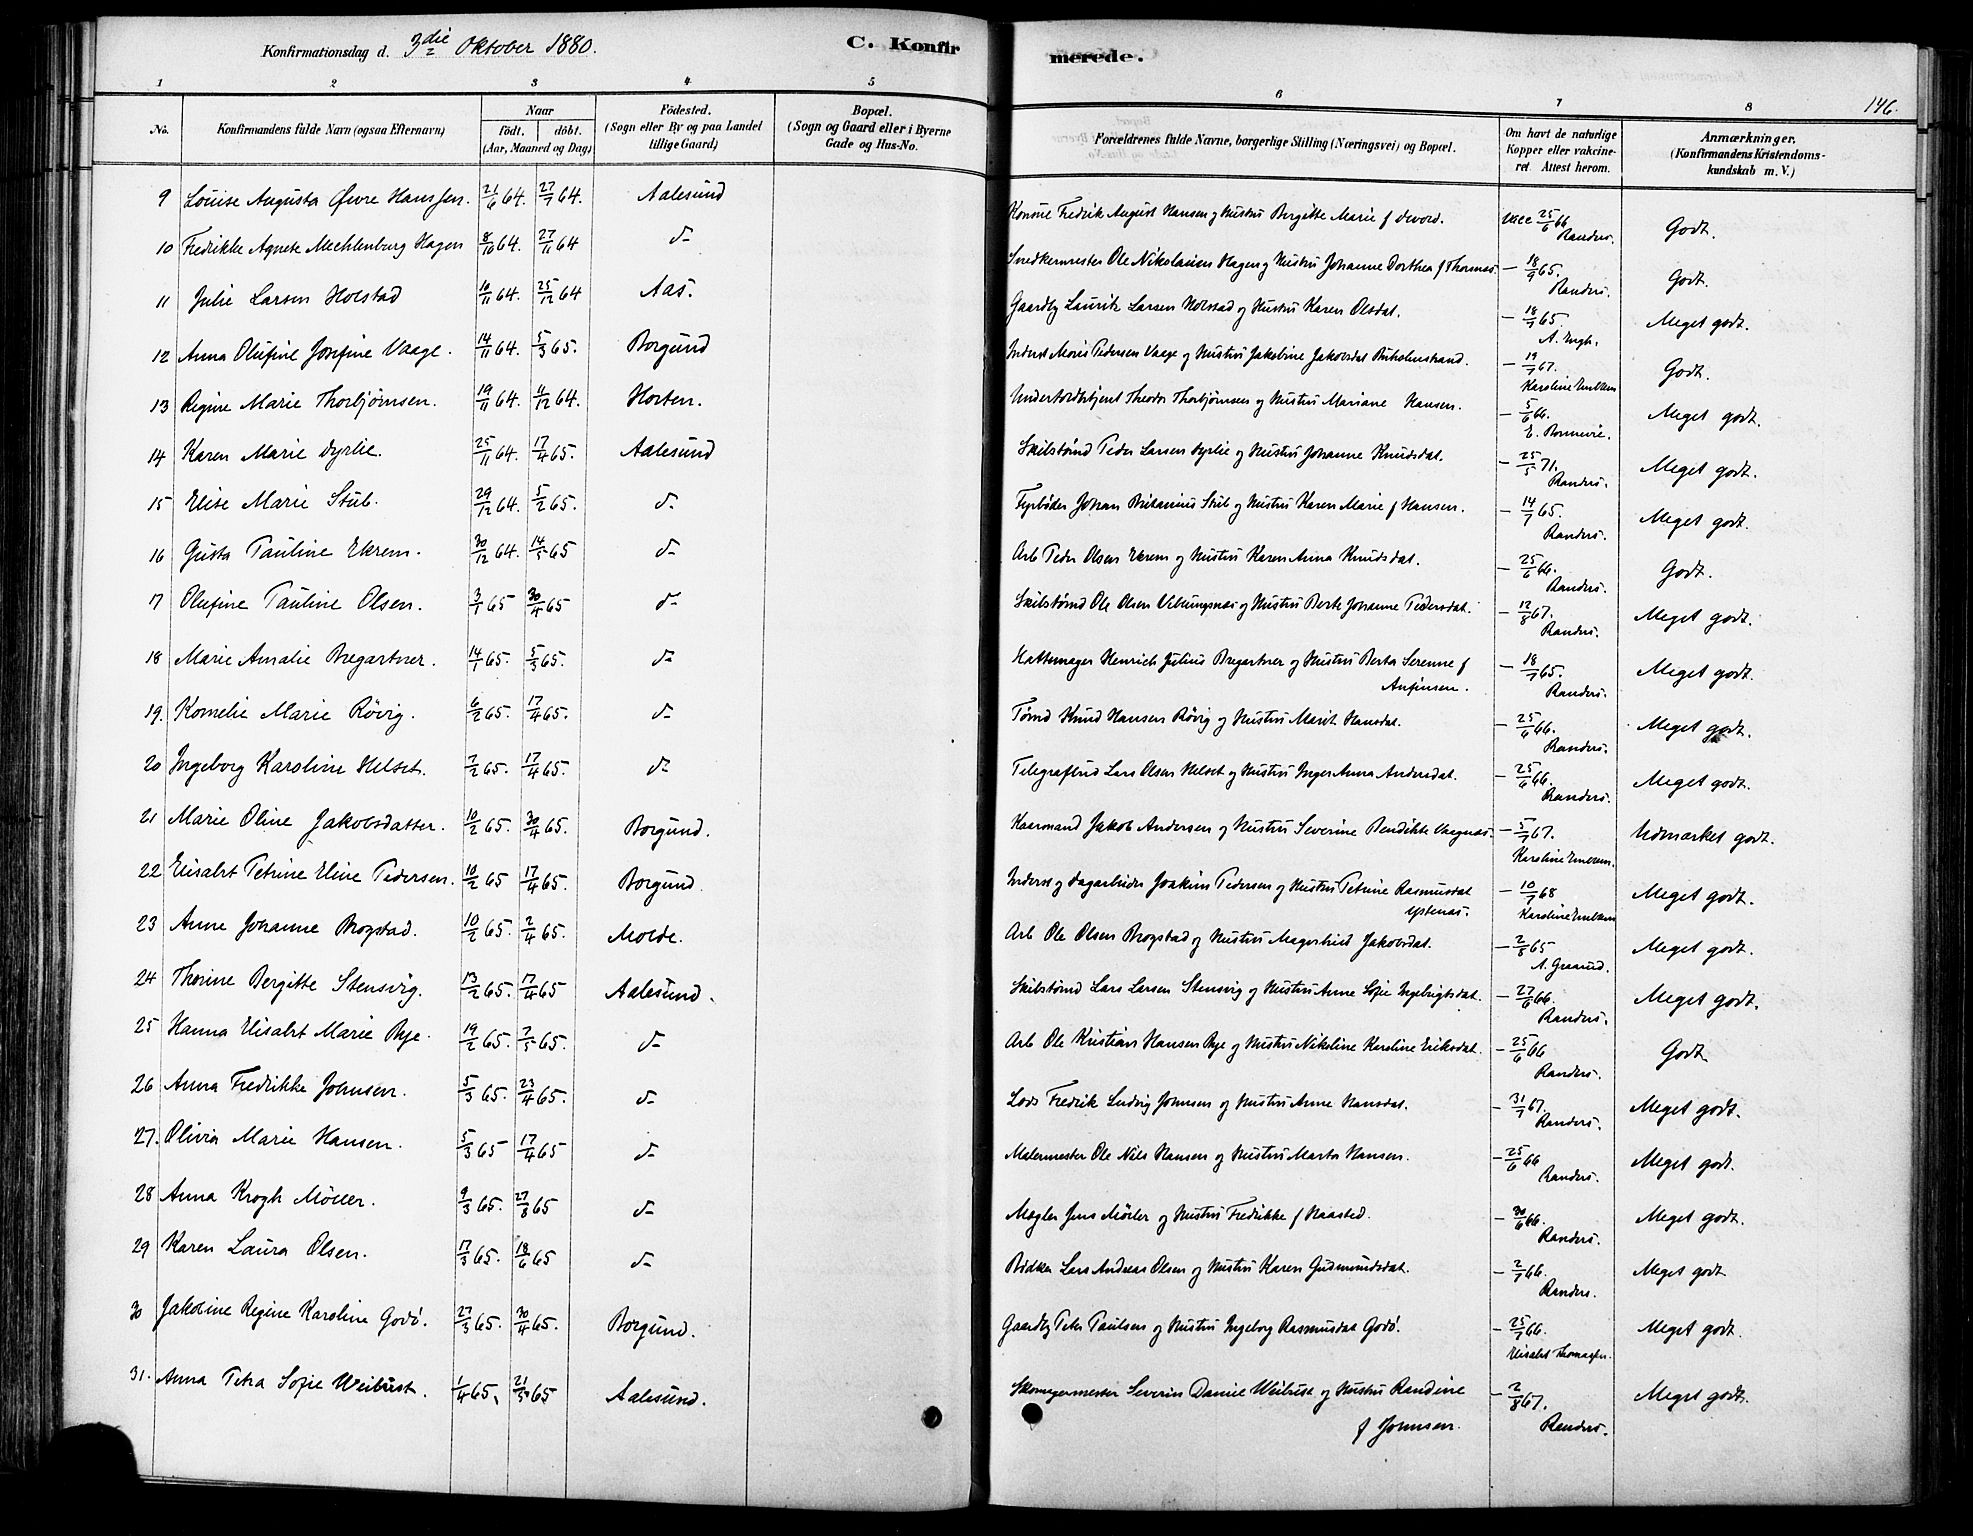 Konfirmationsdag d. 3die Oktober 1880.
C. Konfirmerede.
146.
1 2 3 4 5 6 7 8
No.
Konfirmandens fulde Navn (ogsaa Efternavn)
Naar
födt. döbt.
(Aar, Maaned og Dag)
Födested.
(Sogn eller By og paa Landet tillige Gaard)
Bopæl.
(Sogn og Gaard eller i Byerne Gade og Hus-No.
Forældrenes fulde Navne, borgerlige Stilling (Næringsvei) og Bopæl.
Om havt de naturlige Kopper eller vakcineret. Attest herom.
Anmærkninger.
(Konfirmandens Kristendomskundskab m. V.)
9 Louise Augusta Øwre Hanssen. 21/6 64. 27/7 64. Aalesund Konsul Fredrik August Hansen og Hustru Bergitte Marie f. vacc 25/6 66 Randers. Godt.
10 Fredrikke Agnete Mechlenburg Hagen 8/10 64. 27/11 64 d- Snedkermester Ole Nikolaisen Hagen og Hustru Johanne Dorthea f Thormas. - 18/9 65. Randers. Godt.
11 Julie Larsen Holstad 16/11 64. 25/12 64 Aas. Gaardbr Lauritz Larsen Holstad og Hustru Karen Olsdat. - 18/7 65. Meget godt.
12 Anna Olufine Josefine Vaage. 14/11 64. 5/3 65. Borgund Inderst Mons Pedersen Vaage og Hustru Jakobine Jakobsdat Buholmstrand. - 19/7 67. Karoline Emblem Godt.
13 Regine Marie Thorbjørnsen. 19/11 64. 4/12 64. Horten. Undertoldbetjent Theodor Thorbjørnsen og Hustru Mariane Hansen. - 5/6 66. E. Bonnevie. Meget godt.
14 Karen Marie Dyrlie. 25/11 64. 17/4 65. Aalesund Skibstømd Peder Larsen Dyrlie og Hustru Johanne Knudsdat. - 25/5 71. Randers. Meget godt.
15 Elise Marie Stub. 29/12 64. 5/2 65. d- Fyrbøder Johan Britanius Stub og Hustru Karen Marie f Hansen. - 14/7 65. Randers. Meget godt.
16 Gusta Pauline Ekrem. 30/12 64. 14/5 65 d- Arb Peder Olsen Ekrem og Hustru Karen Anna Knudsdat. - 25/6 66. Randers. Godt.
17 Olufine Pauline Olsen. 3/1 65 30/4 65 d- Skibstømd Ole Olsen Veblungsnæs og Hustru Berte Johanne Pedersdat. - 12/8 67. Randers. Meget godt.
18 Marie Amalie Bregartner. 14/1 65. 5/3 65. d- Hattemager Henrich Julius Bregartner og Hustru Berta Serenne f Anfinsen. - 18/7 65. Randers. Meget godt.
19. Kornelie Marie Røvig. 6/2 65. 17/4 65. d- Tømd Knud Hansen Røvig og Hustru Marit Hansdat. - 25/6 66. Randers. Meget godt.
20 Ingeborg Karoline Helset. 7/2 65. 17/4 65. d- Telegrafbud Lars Olsen Helset og Hustru Inger Anna Andersdat. - 25/6 66. Randers. Meget godt.
21 Marie Oline Jakobsdatter. 10/2 65. 30/4 65. Borgund. Haarmand Jakob Andersen og Hustru Severine Bendikte Vaagnæs. - 5/7 67. Karoline Emblem. Udmærket godt.
22 Elisabt Petrine Eline Pedersen. 10/2 65 17/4 65. Borgund. Inderst og dagarbeider Joakim Pedersen og Hustru Petrine Rasmusdat Ystenæs. - 10/7 68 Karoline Emblem Meget godt.
23 Anne Johanne Brogstad. 10/2 65. 2/4 65. Molde. Arb Ole Olsen Brogstad og Hustru Magnhild Jakobsdat. - 2/8 65 A. Graarud. Meget godt.
24 Thorine Bergitte Stensvig. 13/2 65. 17/4 65 Aalesund. Skibstømd Lars Larsen Stensvig og Hustru Anne Sofie Ingebrigtsdat. - 27/6 66. Randers. Meget godt.
25 Hanna Elisabt Marie Bye. 19/2 65. 7/5 65. d- Arb Ole Kristian Hansen Bye og Hustru Nikoline Karoline Eriksdat. - 25/6 66 Randers. Godt
26 Anna Fredrikke Johnsen. 5/3 65. 23/4 65. d- Lods Fredrik Ludvig Johnsen og Hustru Anne Hansdat. - 31/7 67. Randers. Meget godt.
27. Olivia Marie Hansen. 5/3 65 17/4 65 d- Malermester Ole Nils Hansen og Hustru Marta Hansen. - 25/6 66 Randers. Meget godt.
28 Anna Krogh Möller. 9/3 65. 27/8 65 d- Mægler Jens Möller og Hustru Fredrikke f Haasted. - 30/6 66. Randers. Meget godt.
29 Karen Laura Olsen. 17/3 65. 18/6 65 d- Bødker Lars Andreas Olsen og Hustru Karen Gudmundsdat. - 2/7 66. Randers. Meget godt
30 Jakobine Regine Karoline Godö. 27/3 65. 30/4 65. Borgund. Gaardbr Peter Paulsen og Hustru Ingeborg Rasmusdat Godö. - 25/7 66. Elisabt Thomasen. Meget godt.
31. Anna Petra Sofie Weibust. 1/4 65. 21/5 65 Aalesund. Skomagermester Severin Daniel Weibust og Hustru Randine f Johnsen. - 2/8 67. Randers. Meget godt.